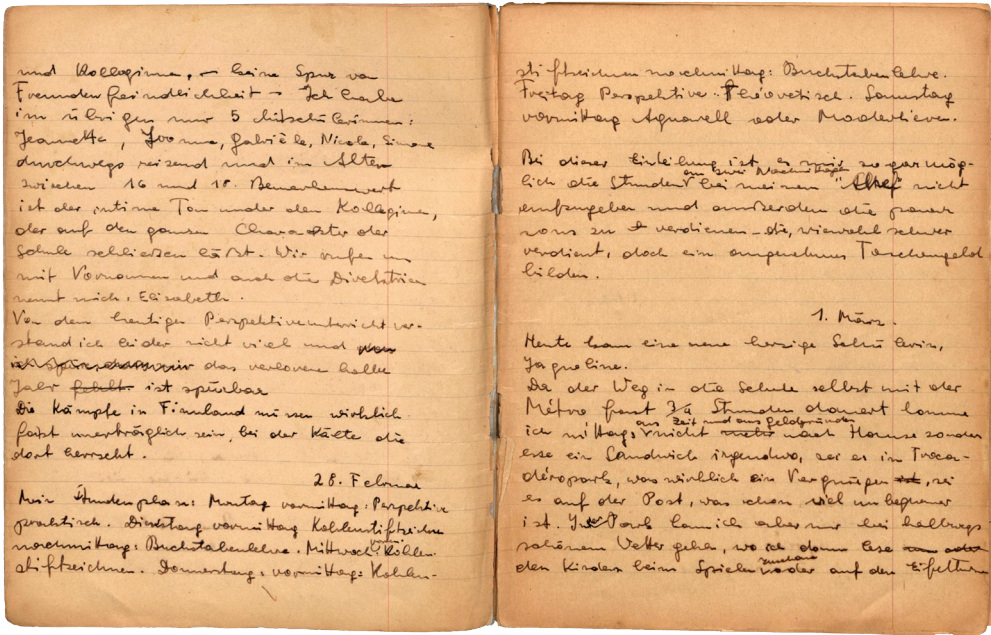 und Kolleginnen, – keine Spur von
Fremdenfeindlichkeit – Ich habe
im übrigen nur 5 Mitschülerinnen:
Jeanette, Yvonne, Gabrièle, Nicole, Simone
durchwegs reizend und im Alter
zwischen 16 und 18. Bemerkenswert
ist der intime Ton unter den Kolleginnen,
der auf den ganzen Charakter der
Schule schliessen lässt. Wir rufen uns
mit Vornamen und auch die Direktrice
nennt mich, Elisabeth.
Von dem heutigen Perspektivunterricht ver-
stand ich leider nicht viel und
das verlorene halbe
Jahr fehlt. ist spürbar
Die Kämpfe in Finnland müssen wirklich
fast unerträglich sein, bei der Kälte die
dort herrscht.
28. Februar
Mein Stundenplan: Montag vormittag: Perspektive
praktisch. Dienstag vormittag Kohlenstiftzeichnen
nachmittag: Buchstabenlehre. Mittwoch vorm. Kohlen-
stiftzeichnen. Donnerstag: vormittag: Kohlen-
stiftzeichnen nachmittag: Buchstabenlehre.
Freitag Perspektive. Théoretisch. Samstag
vormittag Aquarell oder Modelieren.
Bei dieser Einteilung ist es mir sogar mög-
lich die Stunden an zwei Nachmittagen bei meinem "Chef" nicht
aufzugeben und ausserdem die paar
sous zu verdienen – die, wiewohl schwer
verdient, doch ein angenehmes Taschengeld
bilden.
1. März.
Heute kam eine neue herzige Schülerin,
Jaqueline.
Da der Weg in die Schule selbst mit der
Métro fast 3/4 Stunden dauert komme
ich mittags aus Zeit und aus Geldgründen nicht mehr nach Hause sondern
esse ein Sandwich irgendwo, sei es im Troca-
déropark, was wirklich ein Vergnügen ist, sei
es auf der Post, was schon viel unbequemer
ist. In den Park kann ich aber nur bei halbwegs
schönem Wetter gehen, wo ich dann lese
den Kindern beim Spielen zuschaue oder auf den Eiffelturm